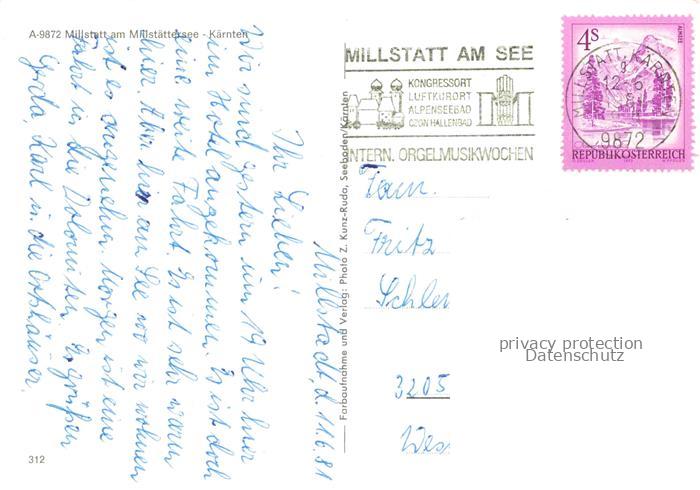 A-9872 Millstatt am Millstättersee - Kärnten
Millstadt, d. 11.6.81
Ihr Lieben!
Wir sind gestern um 19 Uhr hier
im Hotel angekommen. Es ist doch
eine weite Fahrt. Es ist sehr warm
hier. Aber hier am See wo wir wohnen
ist es angenehm. Morgen ist eine
Fahrt in die Dolomiten. Es grüßen
Karl in die
312
Farbaufnahme und Verlag: Photo Z. Kunz-Ruda, Seeboden/Kärnten
MILLSTATT AM SEE
KONGRESSORT
LUFTKURORT
ALPENSEEBAD
HALLENBAD
INTERN. ORGELMUSIKWOCHEN
MILLSTATT, KÄRNTEN
9872
4S
ALMSEE
REPUBLIK ÖSTERREICH
Fam.
Fritz
Schle
3205
privacy protection
Datenschutz